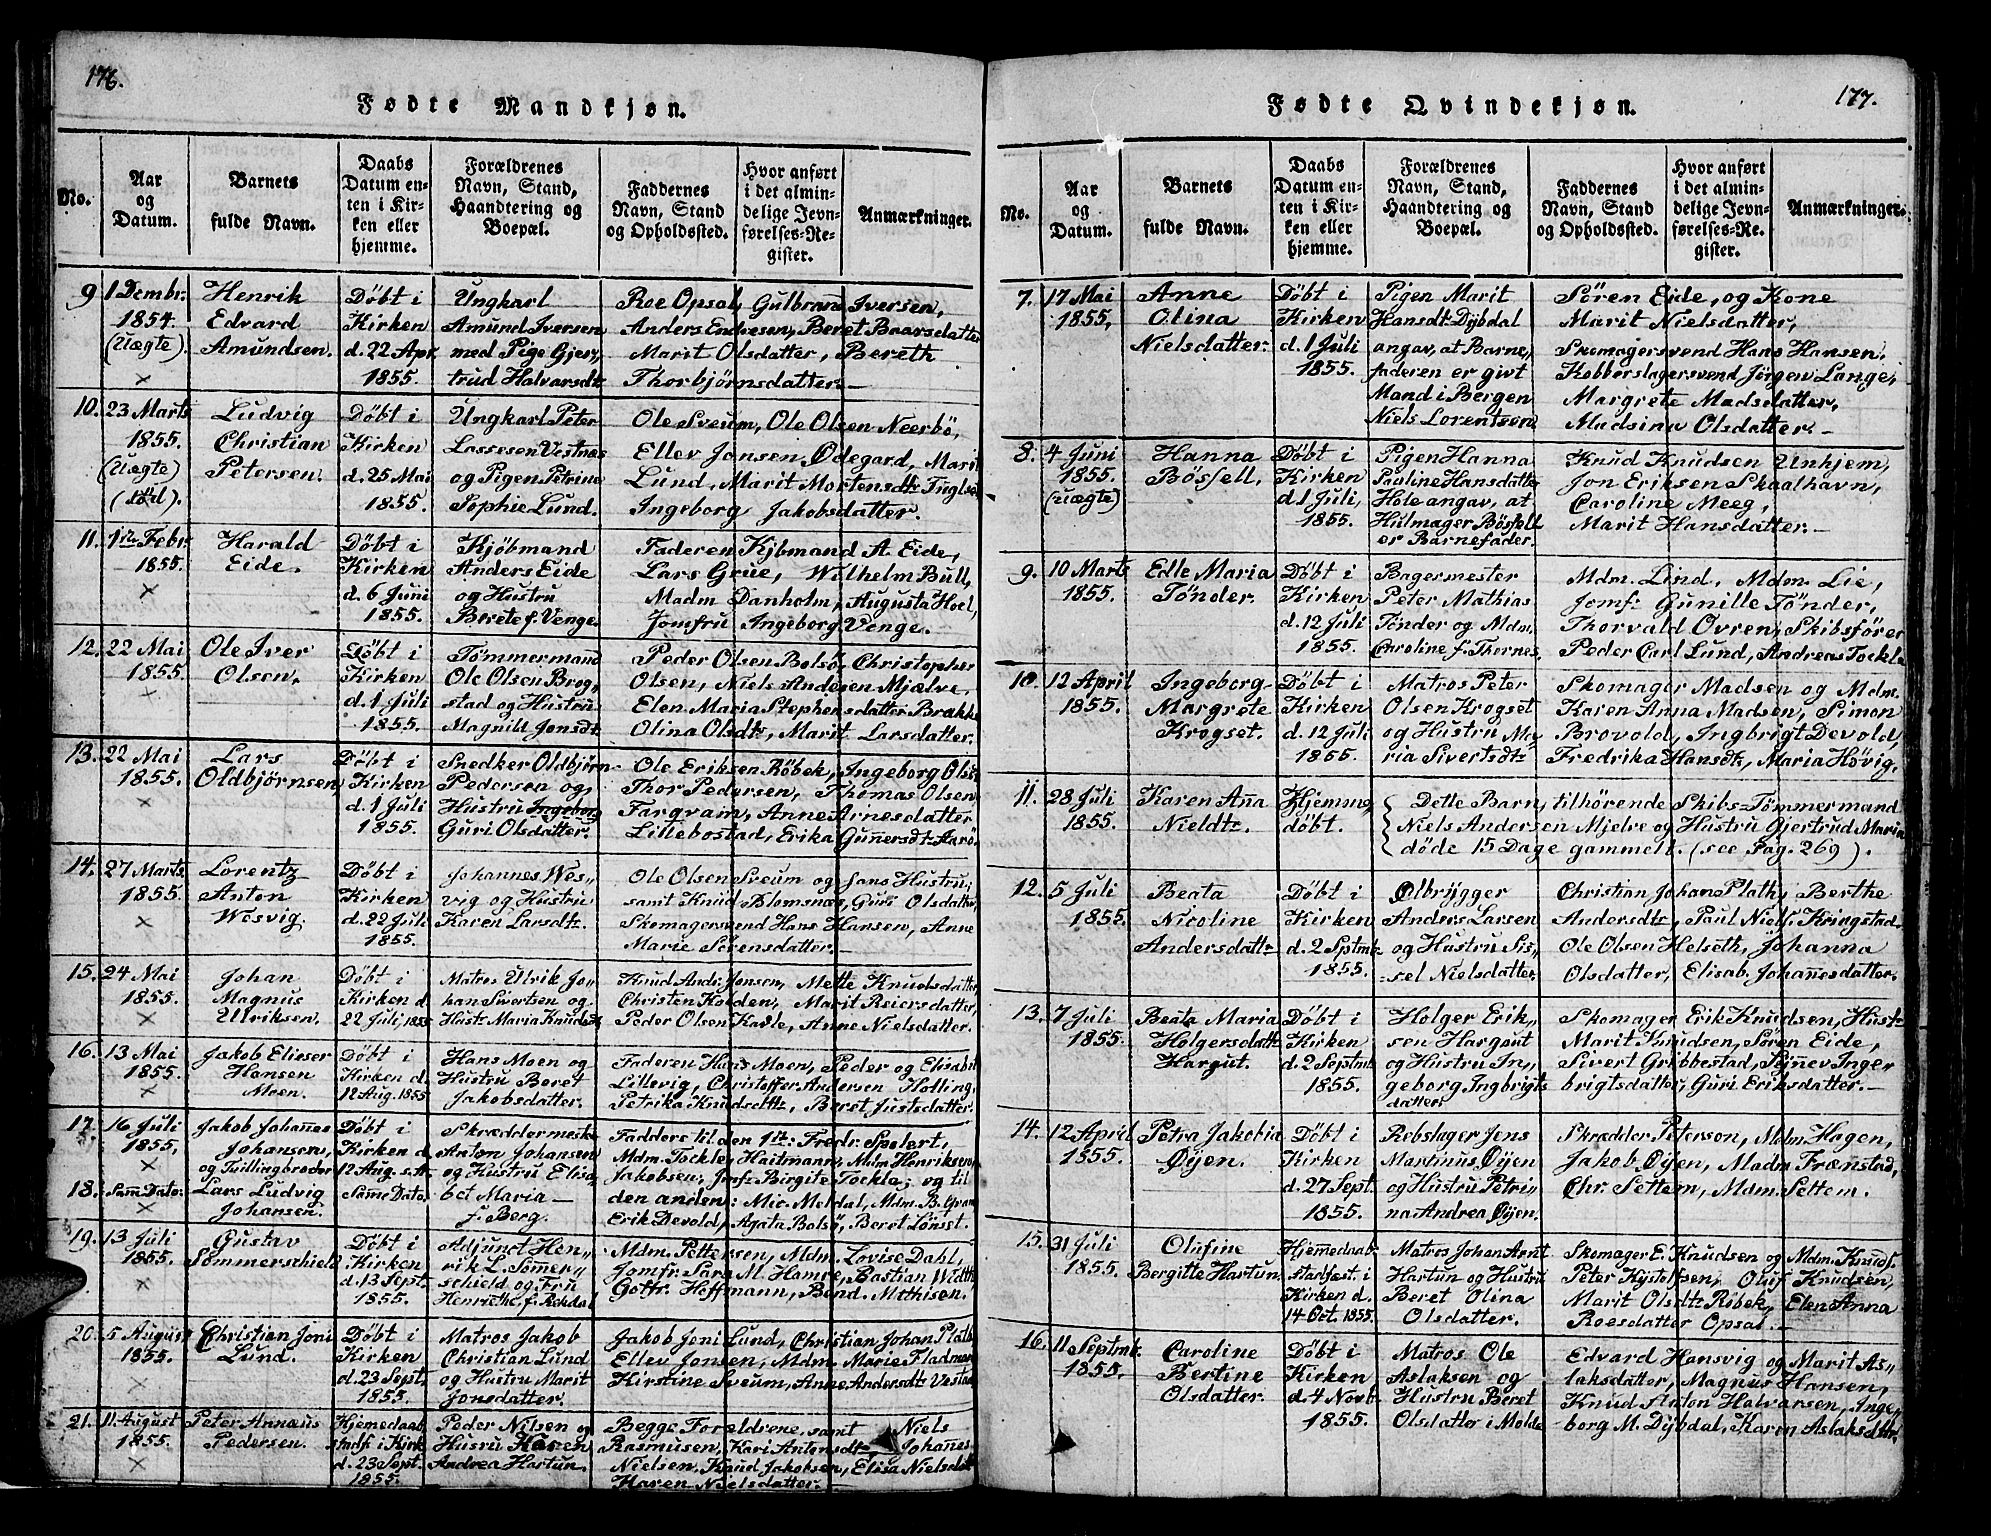 176.
Fødte Mandkjøn.
No.
Aar
og
Datum.
Barnets
fulde Navn.
Daabs
Datum en-
ten i Kir-
ken eller
hjemme.
Forældrenes
Navn, Stand,
Haandtering og
Boepæl.
Faddernes
Navn, Stand
og Opholdssted.
Hvor anført
i det almin-
delige Jevn-
førelses-Re-
gister.
Anmærkninger.
9
1 Dembr.
1854.
(Uægte).
Henrik
Edvard
Amundsen.
Døbt i
Kirken
d. 22 Apr.
1855.
Ungkarl
Amund Iversen
med Pige Gjer„
trud Halvarsdtr
Roe Opsal, Gulbrand Iversen,
Anders Endresen, Beret Baarsdatter
Marit Olsdatter, Bereth
Thorbjørnsdatter.
10.
23 Marts
1855.
(Uægte)
(død).
Ludvig
Christian
Petersen.
Døbt i
Kirken
d. 25 Mai
1855.
Ungkarl Peter
Lassesen Vestnæs
og Pigen Petrine
Sophie Lund.
Ole Sveum, Ole Olsen Neerbø,
Ellev Jonsen, Ødegard, Marit
Lund, Marit Mortensdtr Fuglse
Ingeborg Jakobsdatter.
11.
1ste Febr.
1855.
Harald
Eide.
Døbt i
Kirken
d. 6 Juni
1855.
Kjøbmand
Anders Eide
og Hustru
Berete f. Venge
Faderen Kjbmand A. Eide,
Lars Grue, Wilhelm Bull,
Madm Danholm, Augusta Hoel,
Jomfru Ingeborg Venge.
12.
22 Mai
1855.
Ole Iver
Olsen.
Døbt i
Kirken
d. 1 Juli
1855.
Tømmermand
Ole Olsen Brog„
stad og Hustru
Magnild Jonsdtr
Peder Olsen Bolsø, Christopher
Olsen, Niels Andersen Mjælve,
Elen Maria Stephensdatter Brække
Olina Olsdtr, Marit Larsdatter.
13.
22 Mai
1855.
Lars
Oldbjørnsen
Døbt i
Kirken
d. 1 Juli
1855.
Snedker Oldbjørn
Pedersen og
Hustru Ingeborg
Guri Olsdatter.
Ole Eriksen Røbek, Ingeborg Olsd
Thor Pedersen, Thomas Olsen
Farqvam, Anne Arnesdatter
Lillebostad, Erika Gunnersdtr Aarø.
14.
27 Marts
1855.
Lorentz
Anton
Wosvig.
Døbt i
Kirken
d. 22 Juli
1855.
Johannes Wos„
vig og Hustru
Karen Larsdtr.
Ole Olsen Sveum og Hans Hustru;
samt Knud Blomsnæs, Guri Olsdatter
Skomagersvend Hans Hansen, Anne
Marie Sørensdatter.
15.
24 Mai
1855.
Johan
Magnus
Ulriksen.
Døbt i
Kirken d.
22 Juli, 1855
Matros Ulrik Jo„
han Sivertsen og
Hustr Maria Knudsdtr
Knud Andr. Jonsen, Mette Knudsdatter
Christen Kolden, Marit Reiersdatter,
Peder Olsen Kavle, Anne Nielsdatter.
16.
13 Mai
1855.
Jakob Elieser
Hansen
Moen.
Døbt i
Kirken d.
12 Aug. 1855
Hans Moen og
Hustru Beret
Jakobsdatter.
Faderen Hans Moen, Peder og Elisabet
Lillevig, Christoffer Andersen Holling,
Petrika Knudsdttr, Beret Justsdatter.
17.
16 Juli
1855.
Jakob Johañes
Johansen,
og Tvillingbroder
Døbt i
Kirken d.
12 Aug.
Skræddermester
Anton Johansen
og Hustru Elisa„
bet Maria
f. Berg.
Fadderstil den 1ste: Fredr. Spolert,
Mdm. Tockle, Haitmann, Mdm Henriksen,
Jakobsen, Jomfr Birgite Tockle; og til
den anden: Mic. Meldal, Mdm. B. Gran
Erik Devold, Agata Bolsø, Beret Lønset.
18.
Sam Dato.
Lars Ludvig
Johansen.
Same Dato.
19.
13 Juli
1855.
Gustav
Sommerschield
Døbt i
Kirken
d. 13 Sept.
1855.
Adjunct Hen„
rik L. Somer„
schield og Fru
Henriethe f. Rekdal
Mdm. Pettersen, Mdm. Lovise Dahl,
Jomfr. Sara M. Hamre, Bastian Width
Gottfr. Hoffmann, Bend. Mathisen.
20.
5 August
1855.
Christian Joni
Lund.
Døbt i
Kirken
d. 23 Sept.
1855.
Matros Jakob
Christian Lund
og Hustru Marit
Jonsdatter.
Jakob Joni Lund, Christian Johan Plath
Ellev Jonsen, Mdm. Marie Fladmark
Kirstine Sveum, Anne Andersdtr Vestad
21.
11 August
1855.
Peter Annæus
Pedersen.
Hjemedaab
stadf. i Kirk
d. 23 Sept.
1855.
Peder Nilsen og
Husru Karen
Andrea Hartun.
Begge Forældrene, samt Niels
Rasmusen, Kari Antonsdtr, Johañes
Nielsen, Knud Jakobsen, Elisa Nielsdtr
Karen Nielsdatter.
177.
Fødte Qvindekjøn.
No.
Aar
og
Datum.
Barnets
fulde Navn.
Daabs
Datum en-
ten i Kir-
ken eller
hjemme.
Forældrenes
Navn, Stand,
Haandtering og
Boepæl.
Faddernes
Navn, Stand
og Opholdssted.
Hvor anført
i det almin-
delige Jevn-
førelses-Re-
gister.
Anmærkninger.
7.
17 Mai
1855.
Anne
Olina
Nielsdatter.
Døbt i
Kirken
d. 1 Juli
1855.
Pigen Marit
Hansdtr Dybdal
angav, at Barne„
faderen er givt
Mand i Bergen
Niels Lorentsen
Søren Eide, og Kone
Marit Nielsdatter,
Skomagersvend Hans Hansen,
Kobberslagersvend Jørgen Lange,
Margrete Madsdatter,
Madsina Olsdatter.
8.
4 Juni
1855.
(Uægte)
Hanna
Bøssell.
Døbt i
Kirken
d. 1 Juli,
1855.
Pigen Hanna
Pauline Hansdatter
Hole angav, at
Hulmager Bøsfell
er Barnefader.
Knud Knudsen Unhjem,
Jon Eriksen Skaalhavn,
Caroline Meeg,
Marit Hansdatter.
9.
10 Marts
1855.
Edle Maria
Tønder.
Døbt i
Kirken
d. 12 Juli
1855.
Bagermester
Peter Mathias
Tønder og Mdm.
Caroline f. Thornes.
Mdm. Lind, Mdm. Lie,
Jomfr Gunille Tønder,
Thorvald Ovren, Skibsfører
Peder Carl Lund, Andreas Tockle
10.
12 April
1855.
Ingeborg
Margrete
Krogset.
Døbt i
Kirken
d. 12 Juli
1855.
Matros Peter
Olsen Krogset
og Hustru Ma„
ria Sivertsdtr
Skomager Madsen og Mdm.
Karen Anna Madsen, Simon
Brovold, Ingbrigt Devold,
Fredrika Hansdtr, Maria Høvig.
11.
28 Juli
1855.
Karen Aña
Nieldtr.
Hjemme„
døbt.
Dette Barn, tilhørende Skibs-Tømmermand
Niels Andersen Mjelve og Hustru Gjertrud Maria
døde 15 Dage gammelt. (see Pag. 269).
12.
5 Juli
1855.
Beata
Nicoline
Andersdattr.
Døbt i
Kirken
d. 2 Septmbr
1855.
Ølbrygger
Anders Larsen
og Hustru Sis„
sel Nielsdatter.
Christian Johan Plath, Berthe
Andersdtr, Paul Niels. Kringstad
Ole Olsen Helseth, Johanna
Olsdatter, Elisab. Johañesdatter.
13.
7 Juli
1855.
Beata Maria
Holgersdattr
Hargut.
Døbt i
Kirken
d. 2 Septmb
1855.
Holger Erik„
sen Hargout
og Hustru In„
geborg Ingbrigts
datter.
Skomager Erik Knudsen, Hustr
Marit Knudsen, Søren Eide,
Sivert Gribbestad, Synnev Inger
brigtsdatter, Guri Eriksdatter.
14.
12 April
1855.
Petra Jakobia
Øyen.
Døbt i
Kirken
d. 27 Sept.
1855.
Rebslager Jens
Martinus Øyen
og Hustru Petri„
na Andrea Øyen.
Skrædder Peterson, Mdm. Hagen,
Jakob Øyen, Madm Frænstad,
Chr. Settem, Mdm. Settem.
15.
31 Juli
1855.
Olufine
Bergitte Hartun.
Hjemedaab
stadfæst. i
Kirken d.
14 Oct. 1855.
Matros Johan Arnt
Hartun og Hustru
Beret Olina
Olsdatter.
Skomager E. Knudsen og Mdm. Knuds.
Peter Kystolfsen, Oluf Knudsen,
Marit Olsdtr Røbek, Elen Anna
Roesdatter Opsal.
16.
11 Septmbr
1855.
Caroline
Bertine
Olsdatter.
Døbt i
Kirken
d. 4 Novb
1855.
Matros Ole
Aslaksen og
Hustru Beret
Olsdatter i Molde
Edvard Hansvig og Marit As„
laksdatter, Magnus Hansen,
Knud Anton Halvarsen, Inge„
borg M. Dybdal, Karen Aslaksdttr.